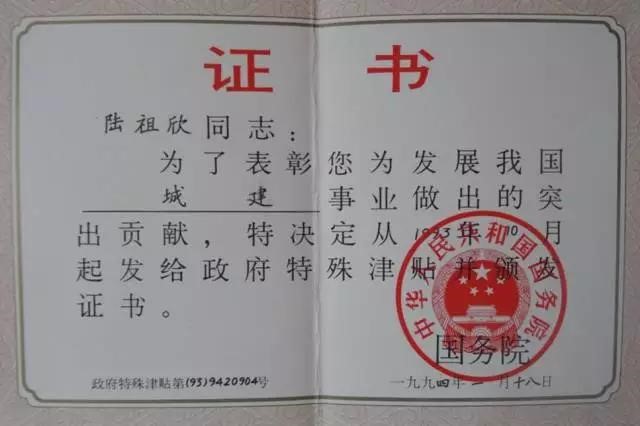 证书
陆祖欣同志：
为了表彰您为发展我国
城建事业做出的突
出贡献，特决定从1993年10月
起发给政府特殊津贴并颁发
证书。
中华人民共和国国务院
国务院
政府特殊津贴第(93)9420904号
一九九四年一月十八日